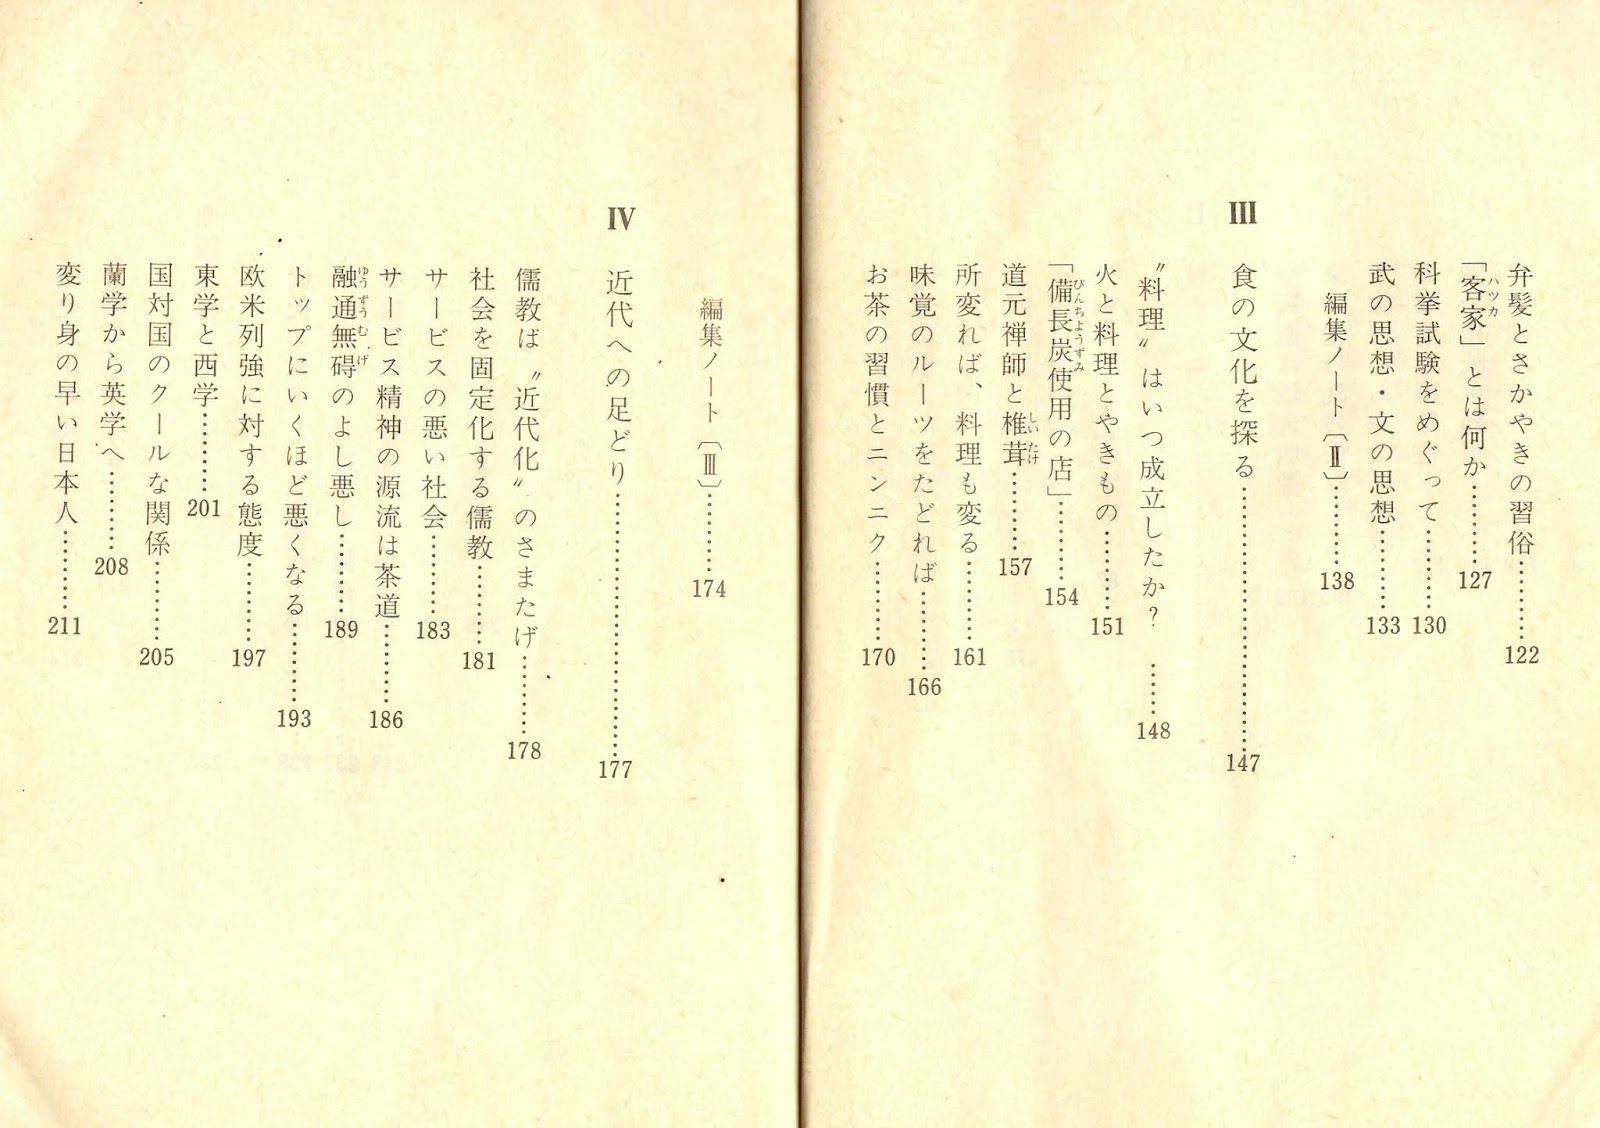 弁髪とさかやきの習俗………122
「客家」とは何か………127
科挙試験をめぐって………130
武の思想・文の思想………133
編集ノート〔Ⅱ〕………138
Ⅲ 食の文化を探る………147
〝料理〟はいつ成立したか？ ………148
火と料理とやきもの………151
「備長炭使用の店」………154
道元禅師と椎茸………157
所変れば、料理も変る………161
味覚のルーツをたどれば………166
お茶の習慣とニンニク………170
編集ノート〔Ⅲ〕………174
Ⅳ 近代への足どり………177
儒教は〝近代化〟のさまたげ………178
社会を固定化する儒教………181
サービスの悪い社会………183
サービス精神の源流は茶道………186
融通無碍のよし悪し………189
トップにいくほど悪くなる………193
欧米列強に対する態度………197
東学と西学………201
国対国のクールな関係………205
蘭学から英学へ………208
変り身の早い日本人………211